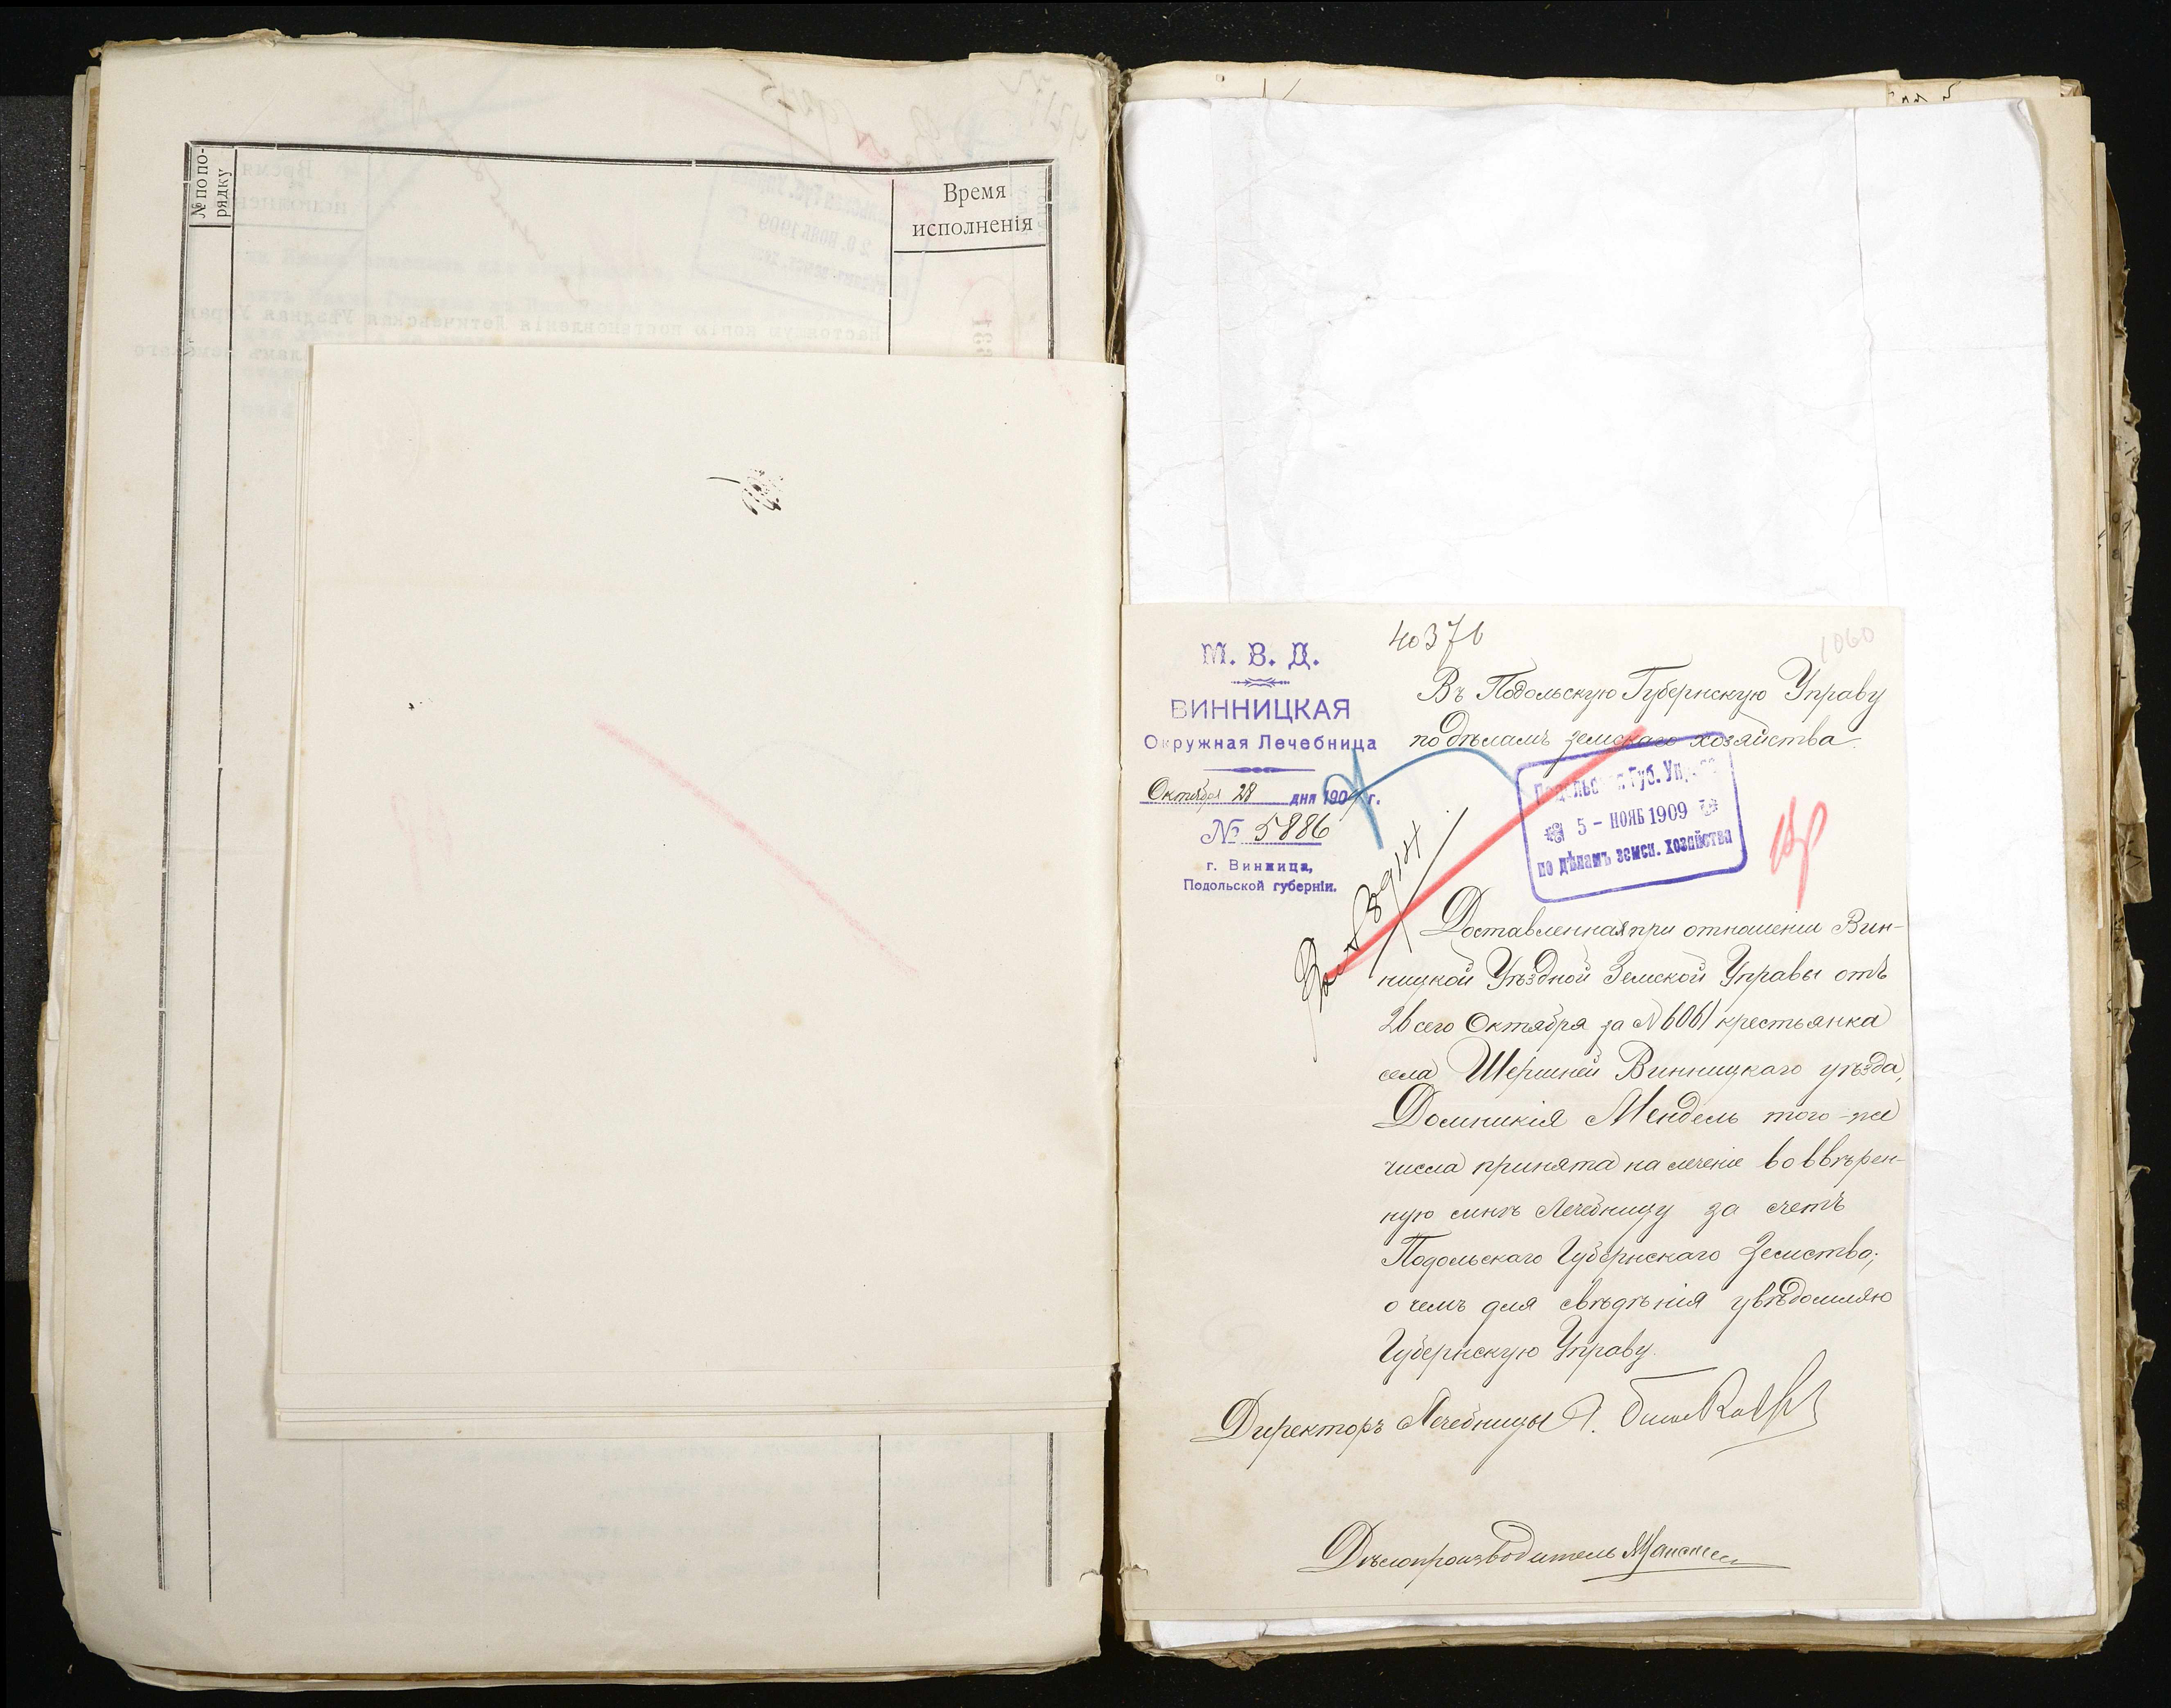 № по по-
рядку
Время
исполненія
40376
1060
М. В. Д.
ВИННИЦКАЯ
Окружная Лечебница
Октября 28 дня 1909 г.
№ 5886
г. Винница,
Подольской губерніи.
Въ Подольскую Губернскую Управу
по дѣламъ земскаго хозяйства.
Подольская Губ. Управа
5 - НОЯБ 1909
по дѣламъ земск. хозяйства
Доставленная при отношеніи Вин-
ницкой Уѣздной Земской Управы отъ
26 сего Октября за № 6061 крестьянка
села Шершней Винницкаго уѣзда,
Домникія Мендель того-же
числа принята на леченіе во ввѣрен-
ную мнѣ Лечебницу за счетъ
Подольскаго Губернскаго Земства;
о чемъ для свѣдѣнія увѣдомляю
Губернскую Управу.
Директоръ Лечебницы
Дѣлопроизводитель